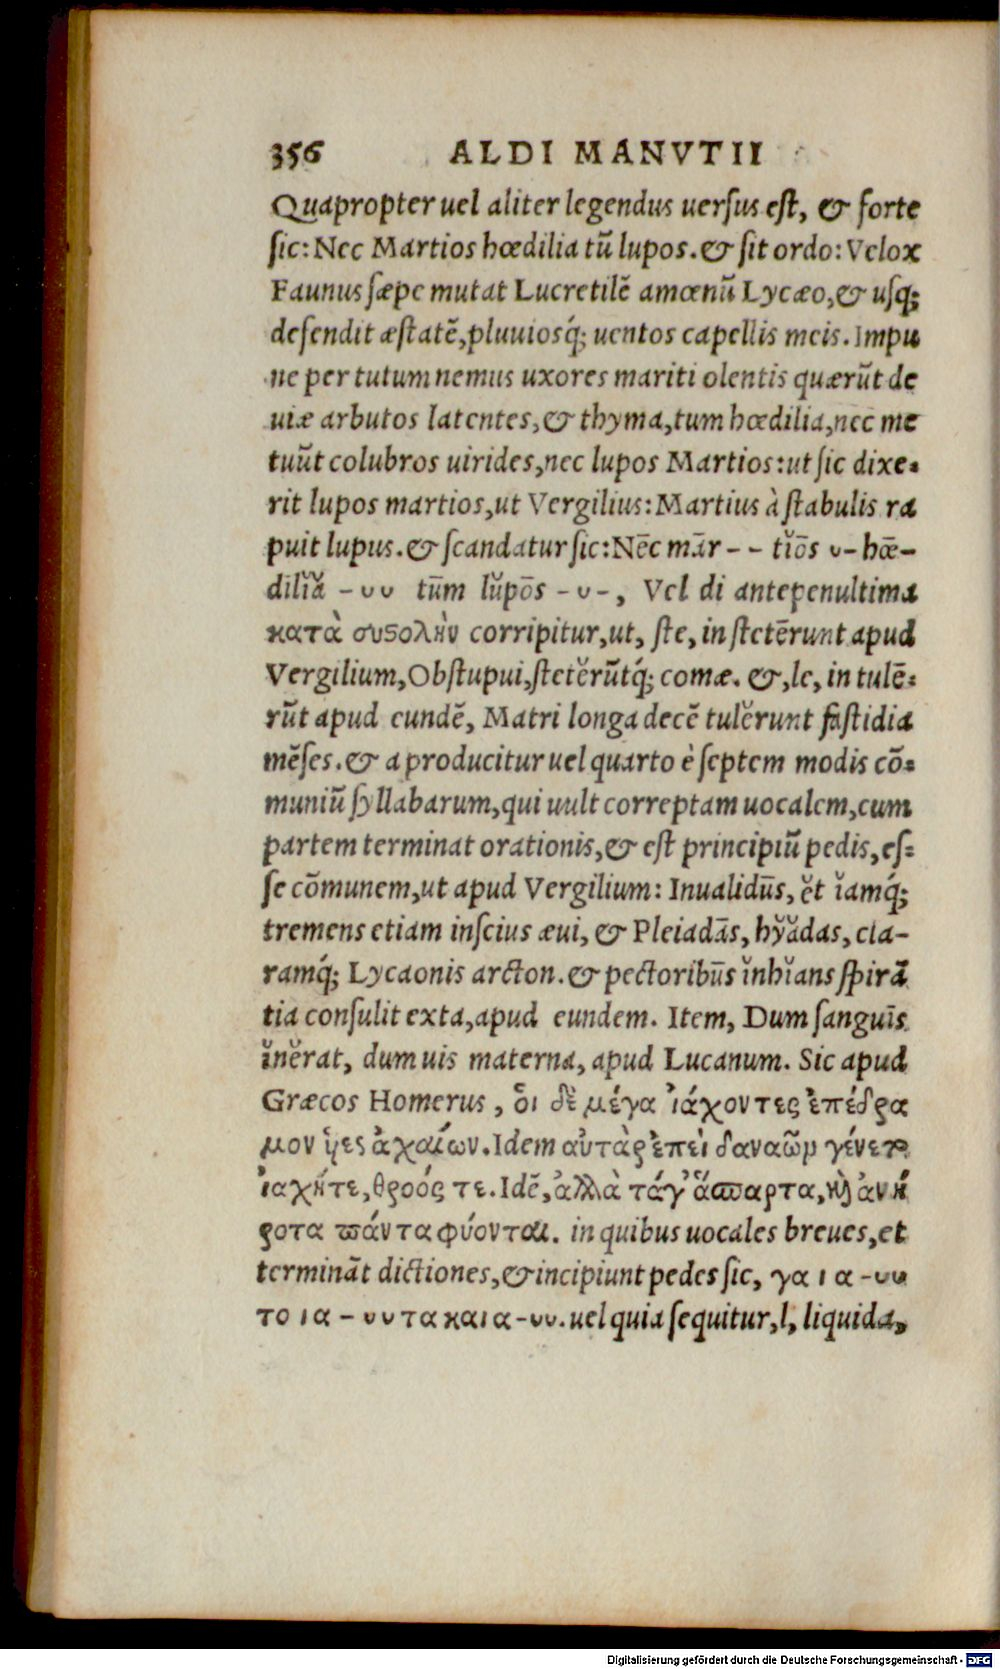 356 ALDI MANVTII
Quapropter uel aliter legendus uersus est, & forte
sic: Nec Martios hœdilia tū lupos. & sit ordo: Velox
Faunus sæpe mutat Lucretilē amœnū Lycæo, & usq;
defendit æstatē, pluuiosq́; uentos capellis meis. Impu
ne per tutum nemus uxores mariti olentis quærūt de
uiæ arbutos latentes, & thyma, tum hœdilia, nec me
tuūt colubros uirides, nec lupos Martios: ut sic dixe-
rit lupos martios, ut Vergilius: Martius à stabulis ra
puit lupus. & scandatur sic: Nēc mār - - tĭōs ᴗ- hœ̄-
dilĭă - ᴗᴗ tūm lŭpōs - ᴗ -, Vel di antepenultima
κατὰ συςολὴν corripitur, ut, ste, in stetērunt apud
Vergilium, Obstupui, stetĕrūtq́; comæ. &, le, in tulē-
rūt apud eundē, Matri longa decē tulĕrunt fastidia
mēses. & a producitur uel quarto è septem modis cō-
muniū syllabarum, qui uult correptam uocalem, cum
partem terminat orationis, & est principiū pedis, es-
se cōmunem, ut apud Vergilium: Inualidūs, ĕt ĭamq́;
tremens etiam inscius æui, & Pleiadās, hy̆ădas, cla-
ramq́; Lycaonis arcton. & pectoribūs ĭnhĭans spirā
tia consulit exta, apud eundem. Item, Dum sanguīs
ĭnĕrat, dum uis materna, apud Lucanum. Sic apud
Græcos Homerus, ὅι δὲ μέγα ἰάχοντες ἐπέδρα
μον ὗες ἀχαίων. Idem αὐτὰρ ἐπεὶ δαναῶν γένετο
ἰαχήτε, θροός τε. Idē, ἀλλὰ τάγ᾽ ἄσπαρτα, καὶ ἀνή
ροτα πάντα φύονται. in quibus uocales breues, et
termināt dictiones, & incipiunt pedes sic, γα ι α -ᴗᴗ
το ια - ᴗᴗ τα και α -ᴗᴗ. uel quia sequitur, l, liquida,
Digitalisierung gefördert durch die Deutsche Forschungsgemeinschaft - DFG